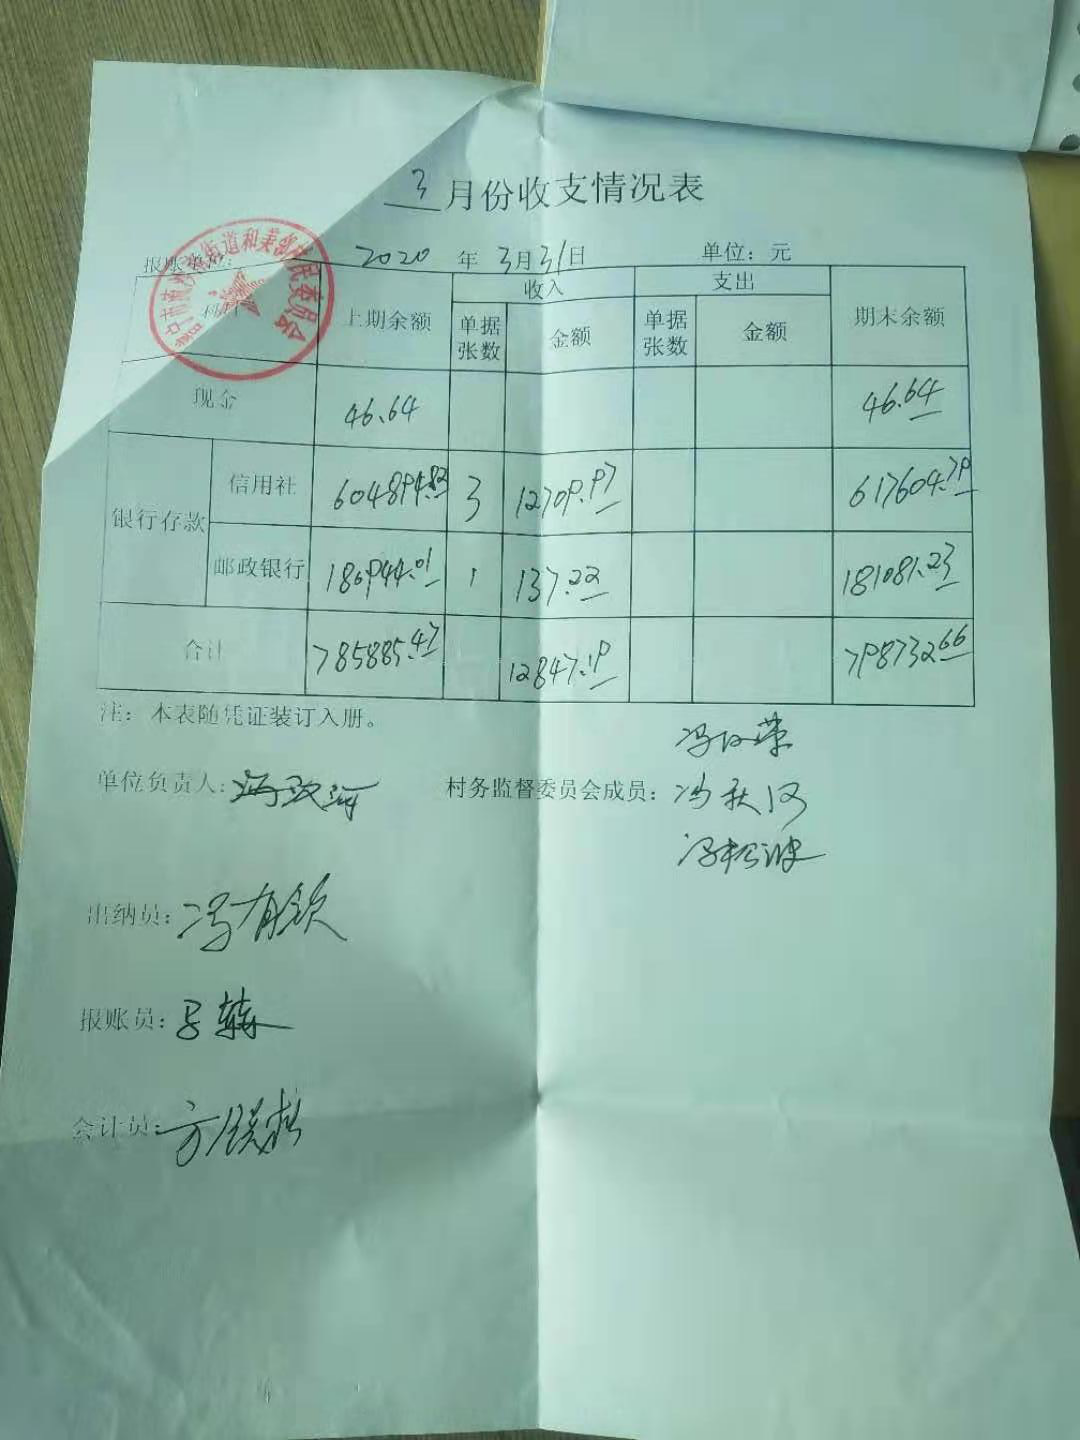 3月份收支情况表
报账单位: 2020 年 3月31日 单位：元
街道和美 民委员会
科目 上期余额 收入 支出 期末余额
单据张数 金额 单据张数 金额
现金 46.64 46.64
银行存款 信用社 604894.82 3 12709.97 617604.79
邮政银行 180944.01 1 137.22 181081.23
合计 785885.47 12847.19 798732.66
注：本表随凭证装订入册。
单位负责人: 村务监督委员会成员：
冯秋
冯松波
出纳员: 冯有钦
报账员:
会计员: 方